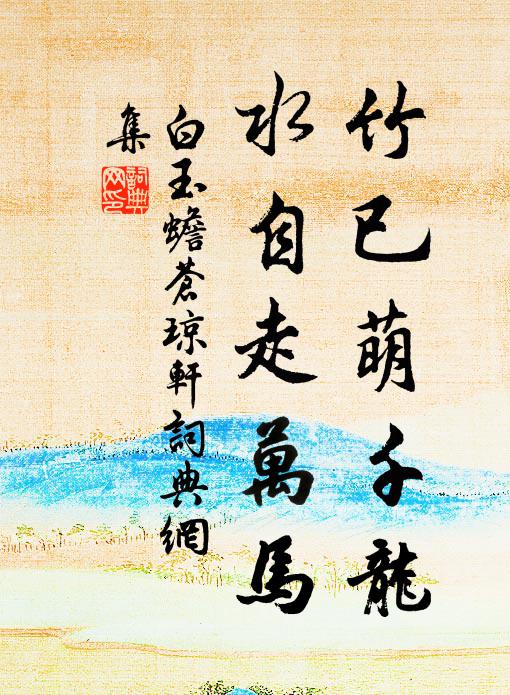 竹已萌千龍
水自走萬馬
白玉蟾蒼琼軒詞典網
集
詞典
网印